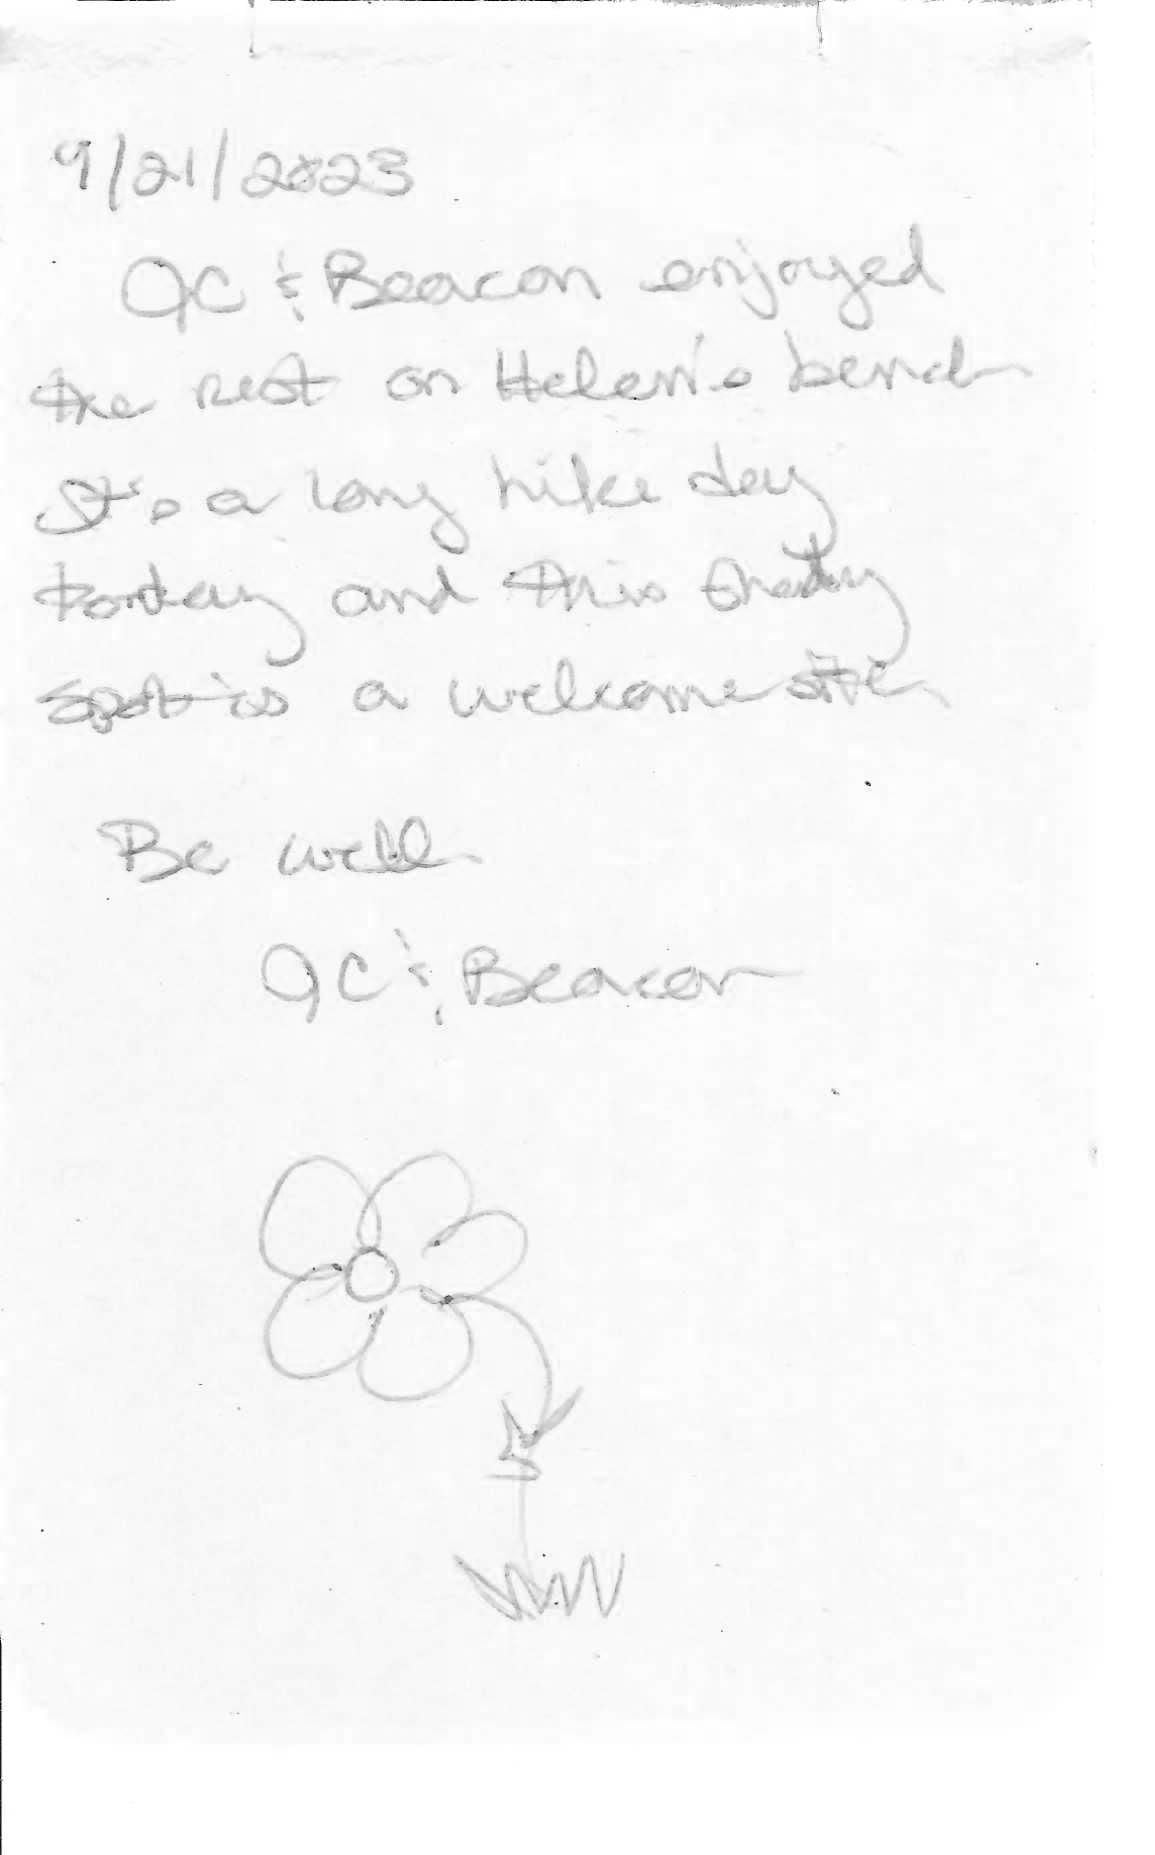 9/21/2023
JC & Beacon enjoyed
the rest on Helen's bench
It's a long hike day
today and this shady
spot is a welcome site.
Be well
JC & Beacon